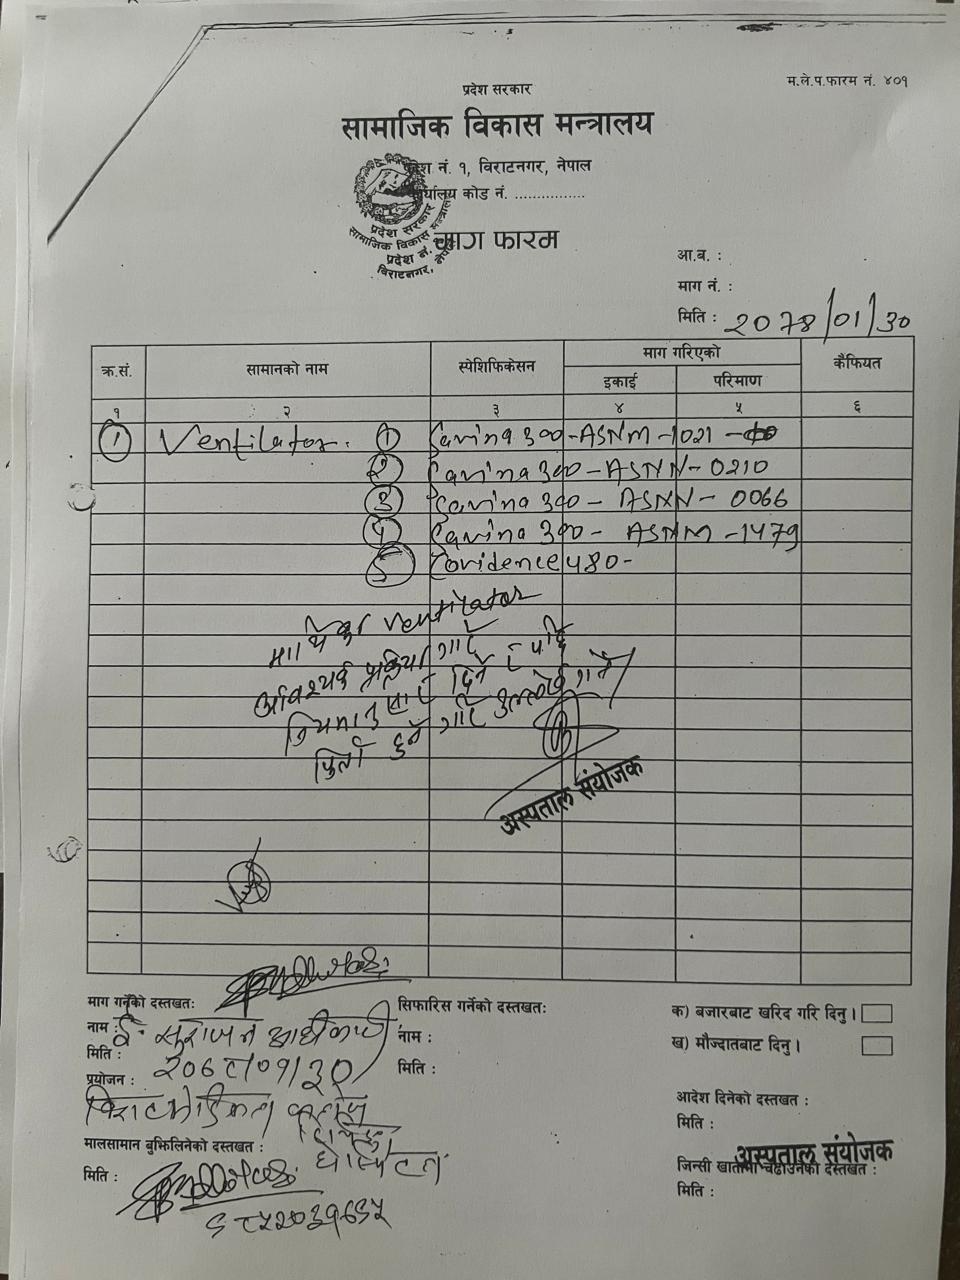 म.ले.प.फारम नं. ४०१
प्रदेश सरकार
सामाजिक विकास मन्त्रालय
प्रदेश नं. १, विराटनगर, नेपाल
कार्यालय कोड नं. ................
प्रदेश सरकार
सामाजिक विकास मन्त्रालय
प्रदेश नं. १
विराटनगर, नेपाल
माग फारम
आ.ब. :
माग नं. :
मिति : 2078/01/30
क्र.सं. सामानको नाम स्पेशिफिकेसन माग गरिएको कैफियत
इकाई परिमाण
१ २ ३ ४ ५ ६
① Ventilator. ① Savina 300-ASNM-1021
② Savina 300-ASNN-0210
③ Savina 300-ASNN-0066
④ Savina 300-ASNM-1479
⑤ 480-
माथिका ventilator
आवश्यक प्रक्रिया गरि
नियमानुसार दिने र पछि
फिर्ता हुने गरि उल्लेख गर्ने
अस्पताल संयोजक
माग गर्नेको दस्तखत:
सिफारिस गर्नेको दस्तखत:
क) बजारबाट खरिद गरि दिनु ।
नाम : ई. आधीकारी
नाम :
ख) मौज्दातबाट दिनु ।
मिति : २०७८/०१/३०
मिति :
प्रयोजन :
आदेश दिनेको दस्तखत :
मिति :
मालसामान बुझिलिनेको दस्तखत :
अस्पताल संयोजक
जिन्सी खातामा चढाउनेको दस्तखत :
मिति :
मिति :